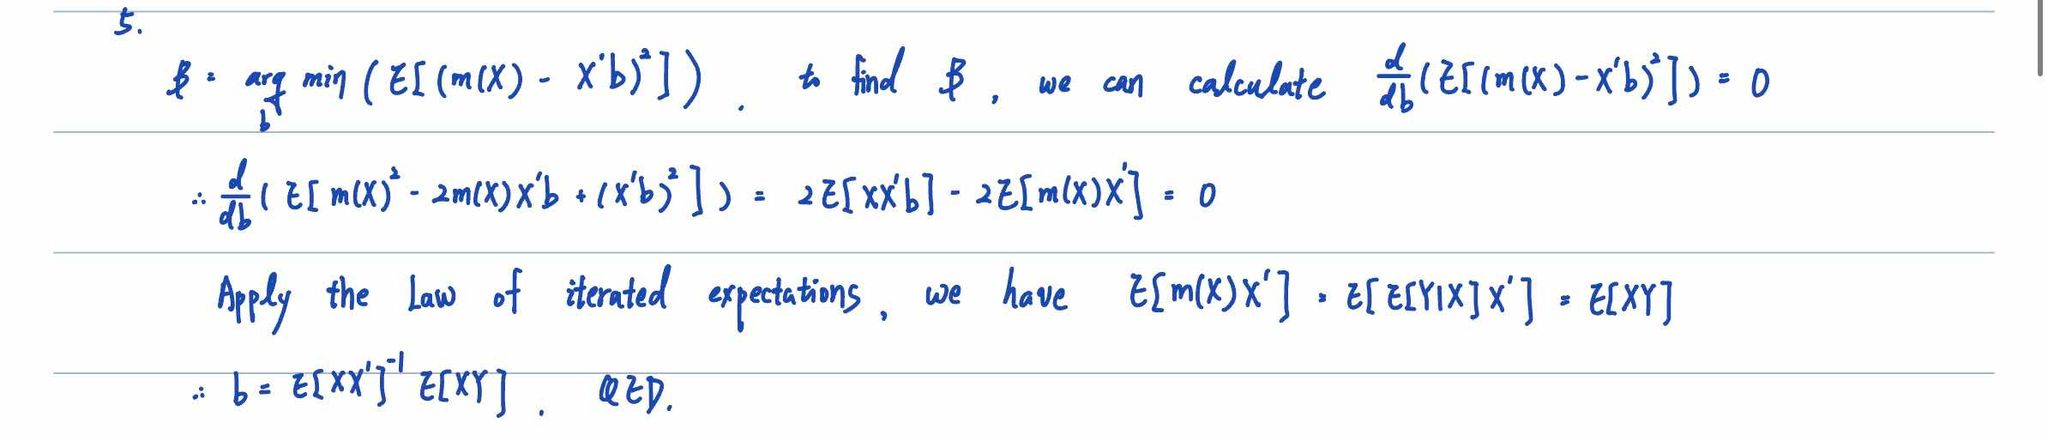 5.
β = arg min_b ( E[ (m(X) - X'b)² ] ) . to find β , we can calculate d/db ( E[ (m(X) - X'b)² ] ) = 0
∴ d/db ( E[ m(X)² - 2m(X)X'b + (X'b)² ] ) = 2E[XX'b] - 2E[m(X)X'] = 0
Apply the Law of iterated expectations , we have E[m(X)X'] = E[ E[Y|X] X' ] = E[XY]
∴ b = E[XX']⁻¹ E[XY] . QED.